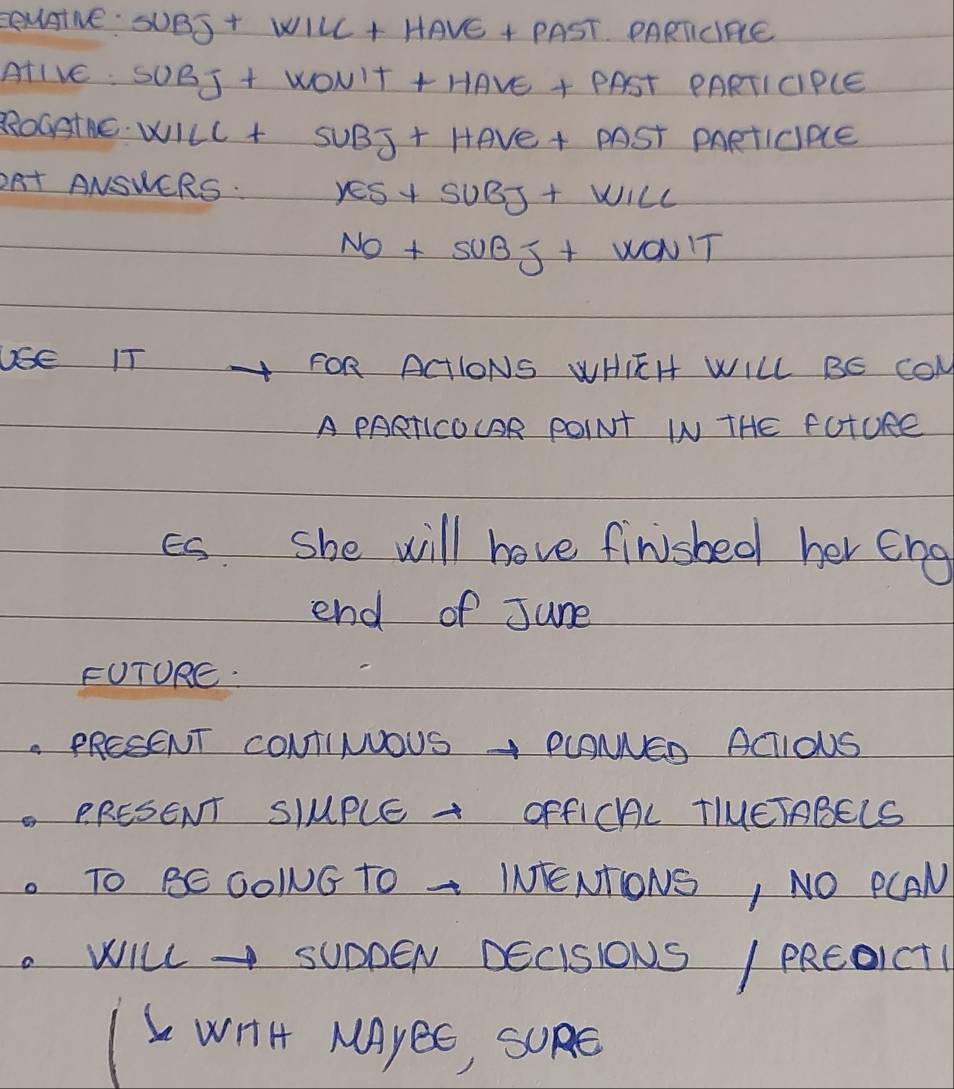 ERMATIVE: SUBJ + WILL + HAVE + PAST PARTICIPLE
ATIVE: SUBJ + WON'T + HAVE + PAST PARTICIPLE
RROGATIVE: WILL + SUBJ + HAVE + PAST PARTICIPLE
ORT ANSWERS: YES + SUBJ + WILL
NO + SUBJ + WON'T
USE IT → FOR ACTIONS WHICH WILL BE COM
A PARTICOLAR POINT IN THE FUTURE
ES. She will have finished her Eng
end of June
FUTURE:
• PRESENT CONTINUOUS → PLANNED ACTIONS
• PRESENT SIMPLE → OFFICIAL TIMETABELS
• TO BE GOING TO → INTENTIONS, NO PLAN
• WILL → SUDDEN DECISIONS / PREDICTI
↳ WITH MAYBE, SURE